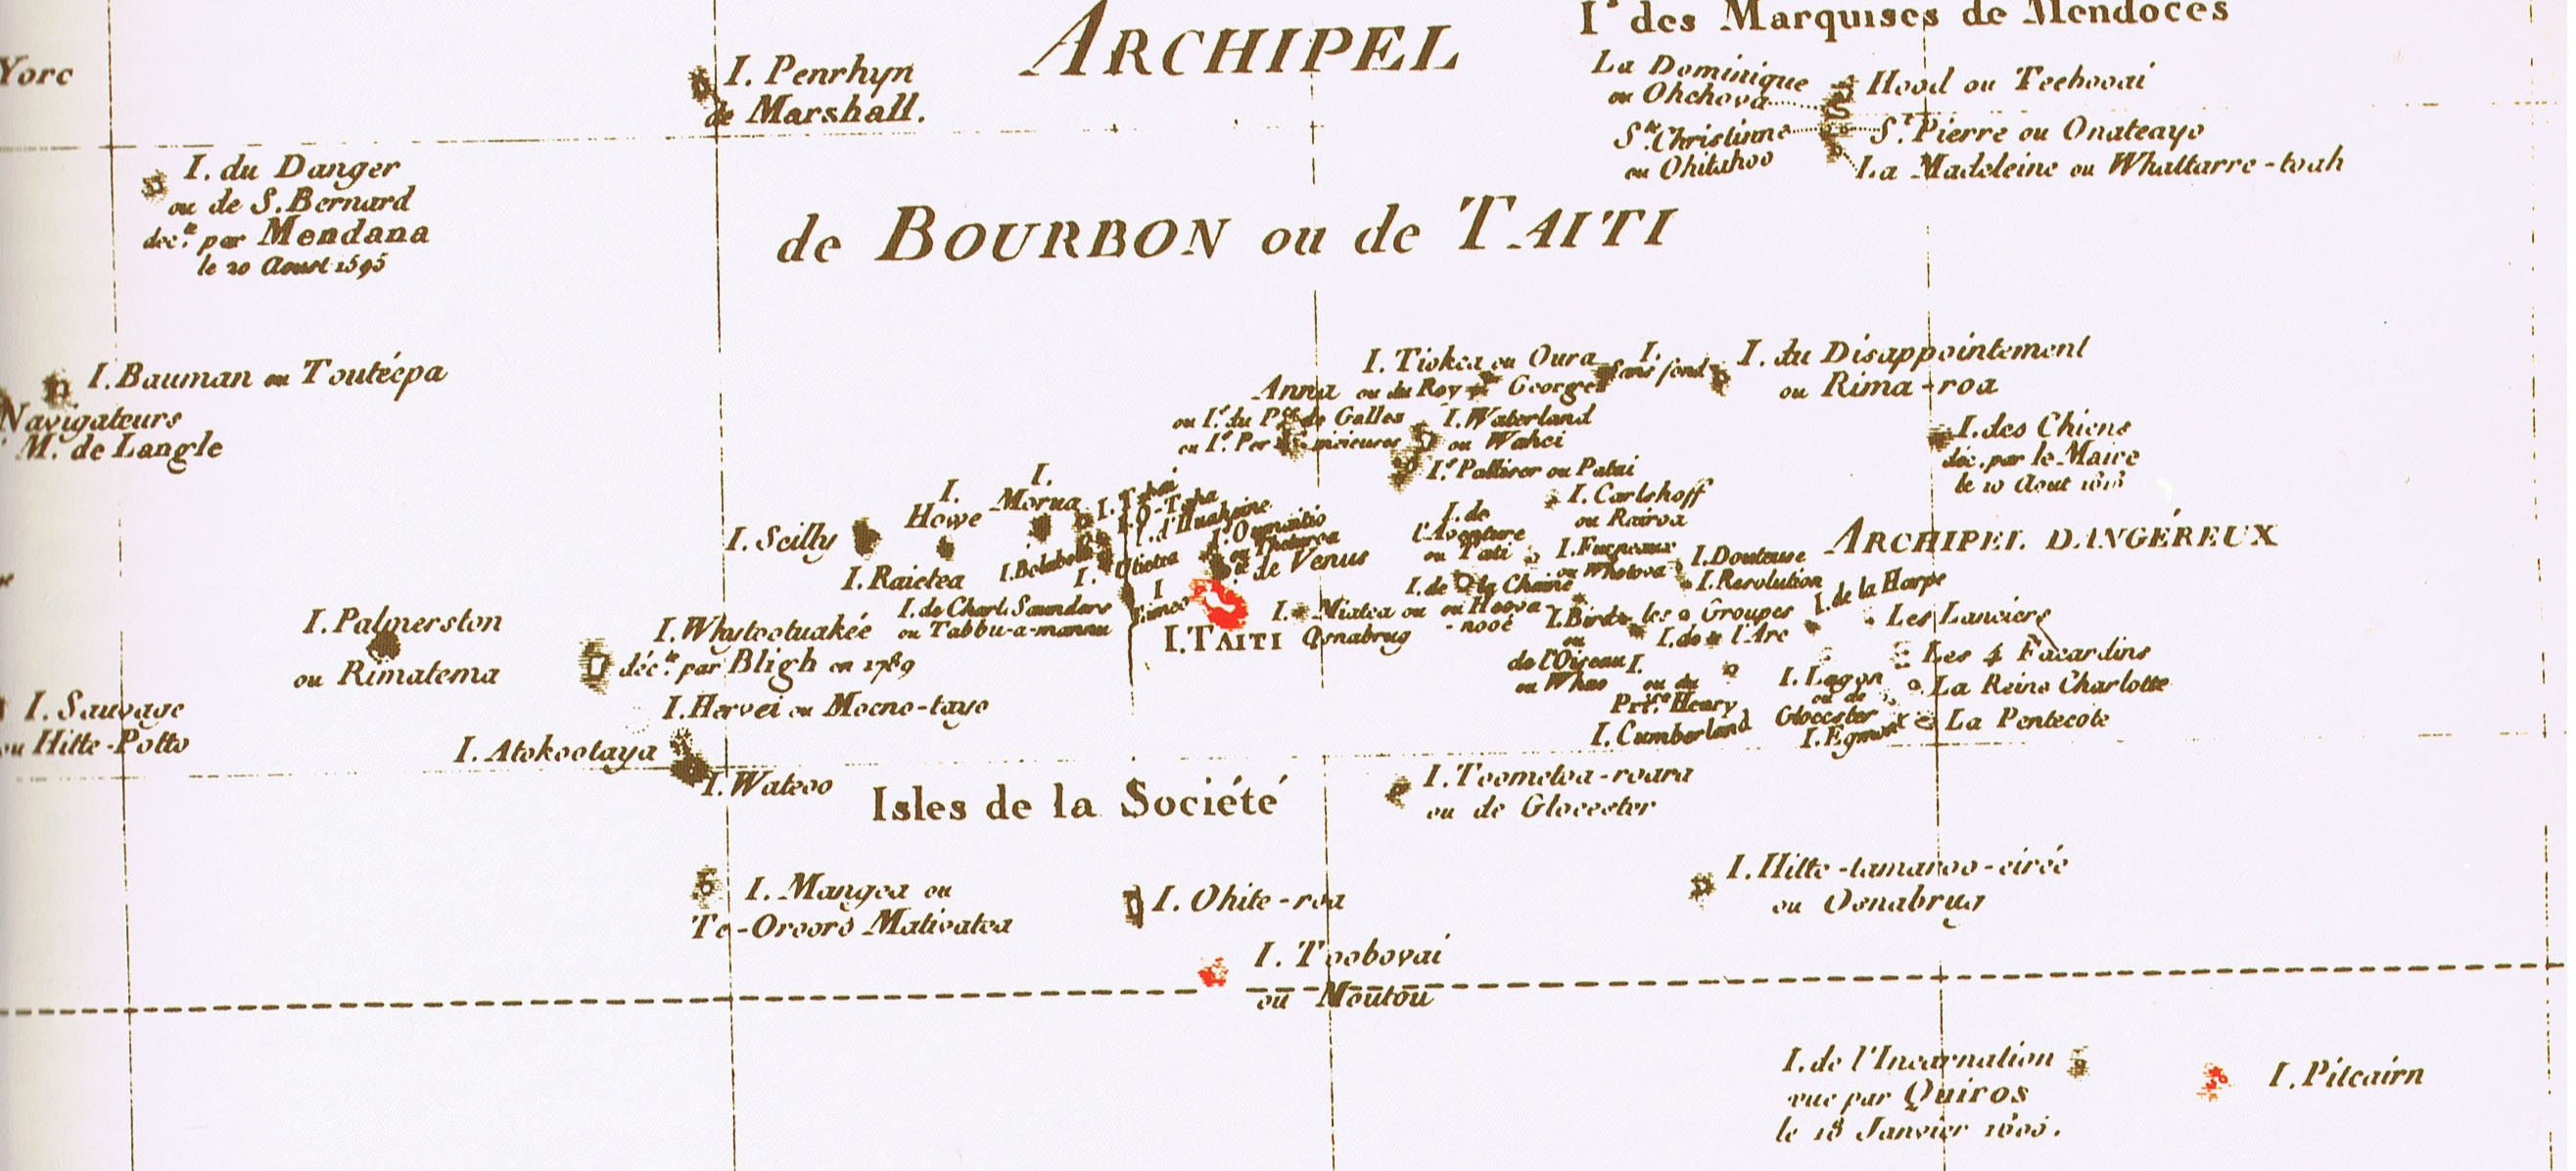 Yorc
I. Penrhyn
de Marshall.
ARCHIPEL
I.s des Marquises de Mendoces
La Dominique
ou Ohchova
Hood ou Teehooai
S.te Christinne
ou Ohitahoo
S.t Pierre ou Onateayo
La Madeleine ou Whattarre-toah
I. du Danger
ou de S. Bernard
déc.te par Mendana
le 20 Aoust 1595
de BOURBON ou de TAITI
I. Bauman ou Toutécpa
Navigateurs
M. de Langle
I. Tiokea ou Oura
ou du Roy George
I.
sans fond
I. du Disappointement
ou Rima-roa
Anna
ou I.s du P.ce de Galles
I. Waterland
ou Wahei
I.s Palliser ou Patai
I. des Chiens
déc. par le Maire
le 10 Aout
I. Carlshoff
ou Rairoa
I.
Howe
I.
Morua
I. Scilly
I. Raietea
I. Bolabola
I. O-Taha
I. d'Huaheine
I. Ulietea
P.te de Venus
I.
Eimeo
I. de
l'Aventure
ou Tati
I. Furneaux
ou Whotova
I. Douteuse
I. Resolution
ARCHIPEL DANGÉREUX
I. de la Chaine
ou Hoova
-nooé
I. de la Harpe
I. de Charl. Saunders
ou Tabbu-a-mannu
I. TAITI
I. Miatea ou
Osnabrug
I. Bird
ou
de l'Oiseau
ou Whao
les 2 Groupes
I. de l'Arc
Les Lanciers
Les 4 Facardins
La Reine Charlotte
La Pentecote
I. Lagon
ou de
Glocester
I. Egmont
I.
ou du
Pr.ce Henry
I. Cumberland
I. Palmerston
ou Rimatema
I. Whytootuakée
déc.te par Bligh en 1789
I. Hervei ou Mocno-taye
I. Sauvage
ou Hitte-Potto
I. Atokootaya
I. Wateoo
Isles de la Société
I. Toometoa-roara
ou de Glocester
I. Mangea ou
Te-Orooro Mativatea
I. Ohite-roa
I. Hitte-tamaroo-eirée
ou Osnabrug
I. Toobovai
ou Moutou
I. de l'Incarnation
vue par Quiros
le 18 Janvier 1606.
I. Pitcairn